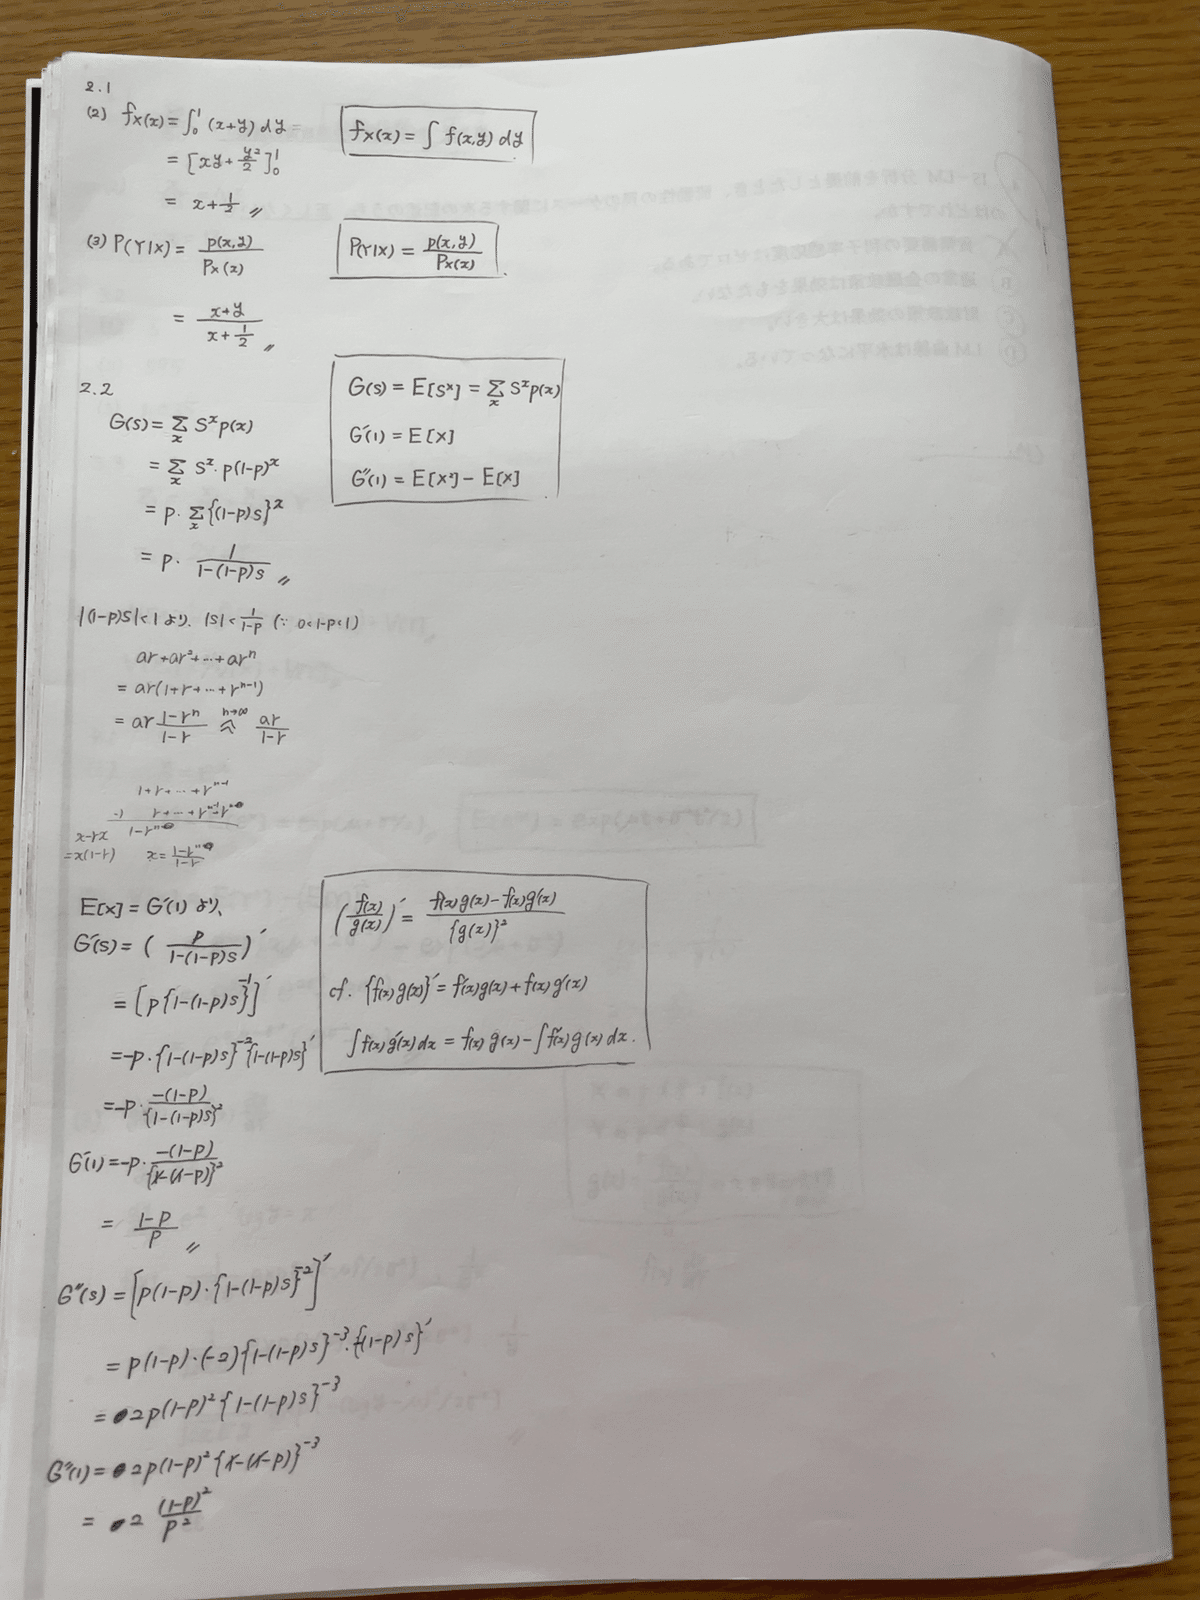 2.1
(2) fx(x) = ∫₀¹ (x+y) dy =
= [xy + y²/2]₀¹
= x + 1/2 〃
fx(x) = ∫ f(x,y) dy
(3) P(Y|X) = p(x,y)/Px(x)
= (x+y)/(x+1/2) 〃
P(Y|X) = p(x,y)/Px(x)
2.2
G(s) = Σx sˣp(x)
= Σx sˣ・p(1-p)ˣ
= p・Σx {(1-p)s}ˣ
= p・1/(1-(1-p)s) 〃
G(s) = E[sˣ] = Σx sˣp(x)
G'(1) = E[X]
G''(1) = E[X²] - E[X]
|(1-p)s|<1 より、 |s|<1/(1-p) (∵ 0<1-p<1)
ar+ar²+…+arⁿ
= ar(1+r+…+rⁿ⁻¹)
= ar (1-rⁿ)/(1-r) n→∞ ar/(1-r)
1+r+…+rⁿ⁻¹
-) r+…+rⁿ⁻¹+rⁿ
x-rx 1-rⁿ
=x(1-r) x = (1-rⁿ)/(1-r)
E[X] = G'(1) より、
G'(s) = ( p/(1-(1-p)s) )'
= [p{1-(1-p)s}⁻¹]'
= -p・{1-(1-p)s}⁻²{1-(1-p)s}'
= -p・-(1-p)/{1-(1-p)s}²
G'(1) = -p・-(1-p)/{1-(1-p)}²
= (1-p)/p 〃
(f(x)/g(x))' = (f'(x)g(x)-f(x)g'(x))/{g(x)}²
cf. {f(x)g(x)}' = f'(x)g(x)+f(x)g'(x)
∫f(x)g'(x)dx = f(x)g(x)-∫f'(x)g(x)dx.
G''(s) = [p(1-p)・{1-(1-p)s}⁻²]'
= p(1-p)・(-2){1-(1-p)s}⁻³・{-(1-p)s}'
= 2p(1-p)²{1-(1-p)s}⁻³
G''(1) = 2p(1-p)²{1-(1-p)}⁻³
= 2 (1-p)²/p²